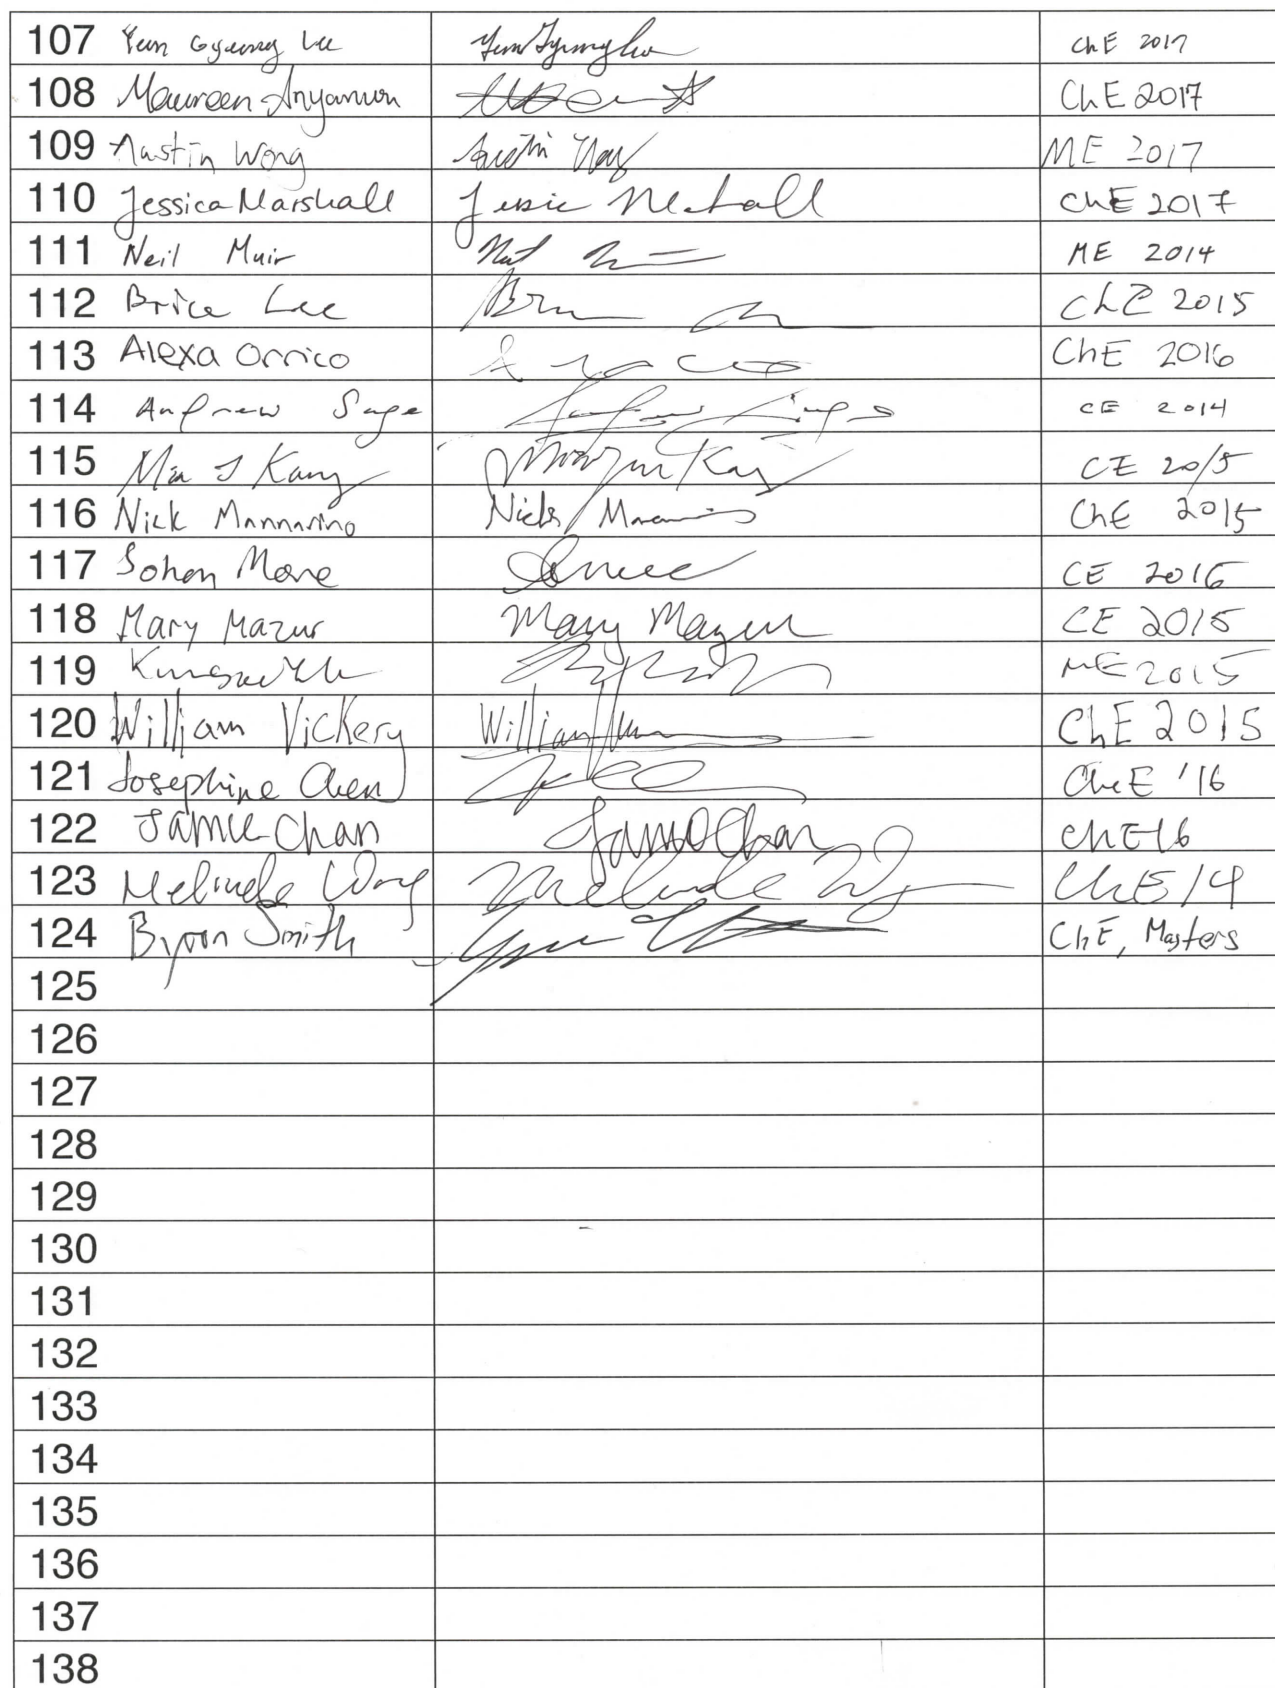 107 Yeun Gyeung Lee ChE 2017
108 Maureen ChE 2017
109 Austin Wong Austin Wong ME 2017
110 Jessica Marshall ChE 2017
111 Neil Muir ME 2014
112 Brice Lee ChE 2015
113 Alexa Orrico ChE 2016
114 Andrew Sage CE 2014
115 Min J Kang CE 2015
116 Nick Mannarino Nick ChE 2015
117 Sohan More CE 2016
118 Mary Mazur Mary Mazur CE 2015
119 ME 2015
120 William Vickery William ChE 2015
121 Josephine Chen CheE '16
122 Jamie Chan Jamie Chan ChE 16
123 Melinda Wong Melinda ChE 14
124 Byron Smith ChE, Masters
125
126
127
128
129
130
131
132
133
134
135
136
137
138